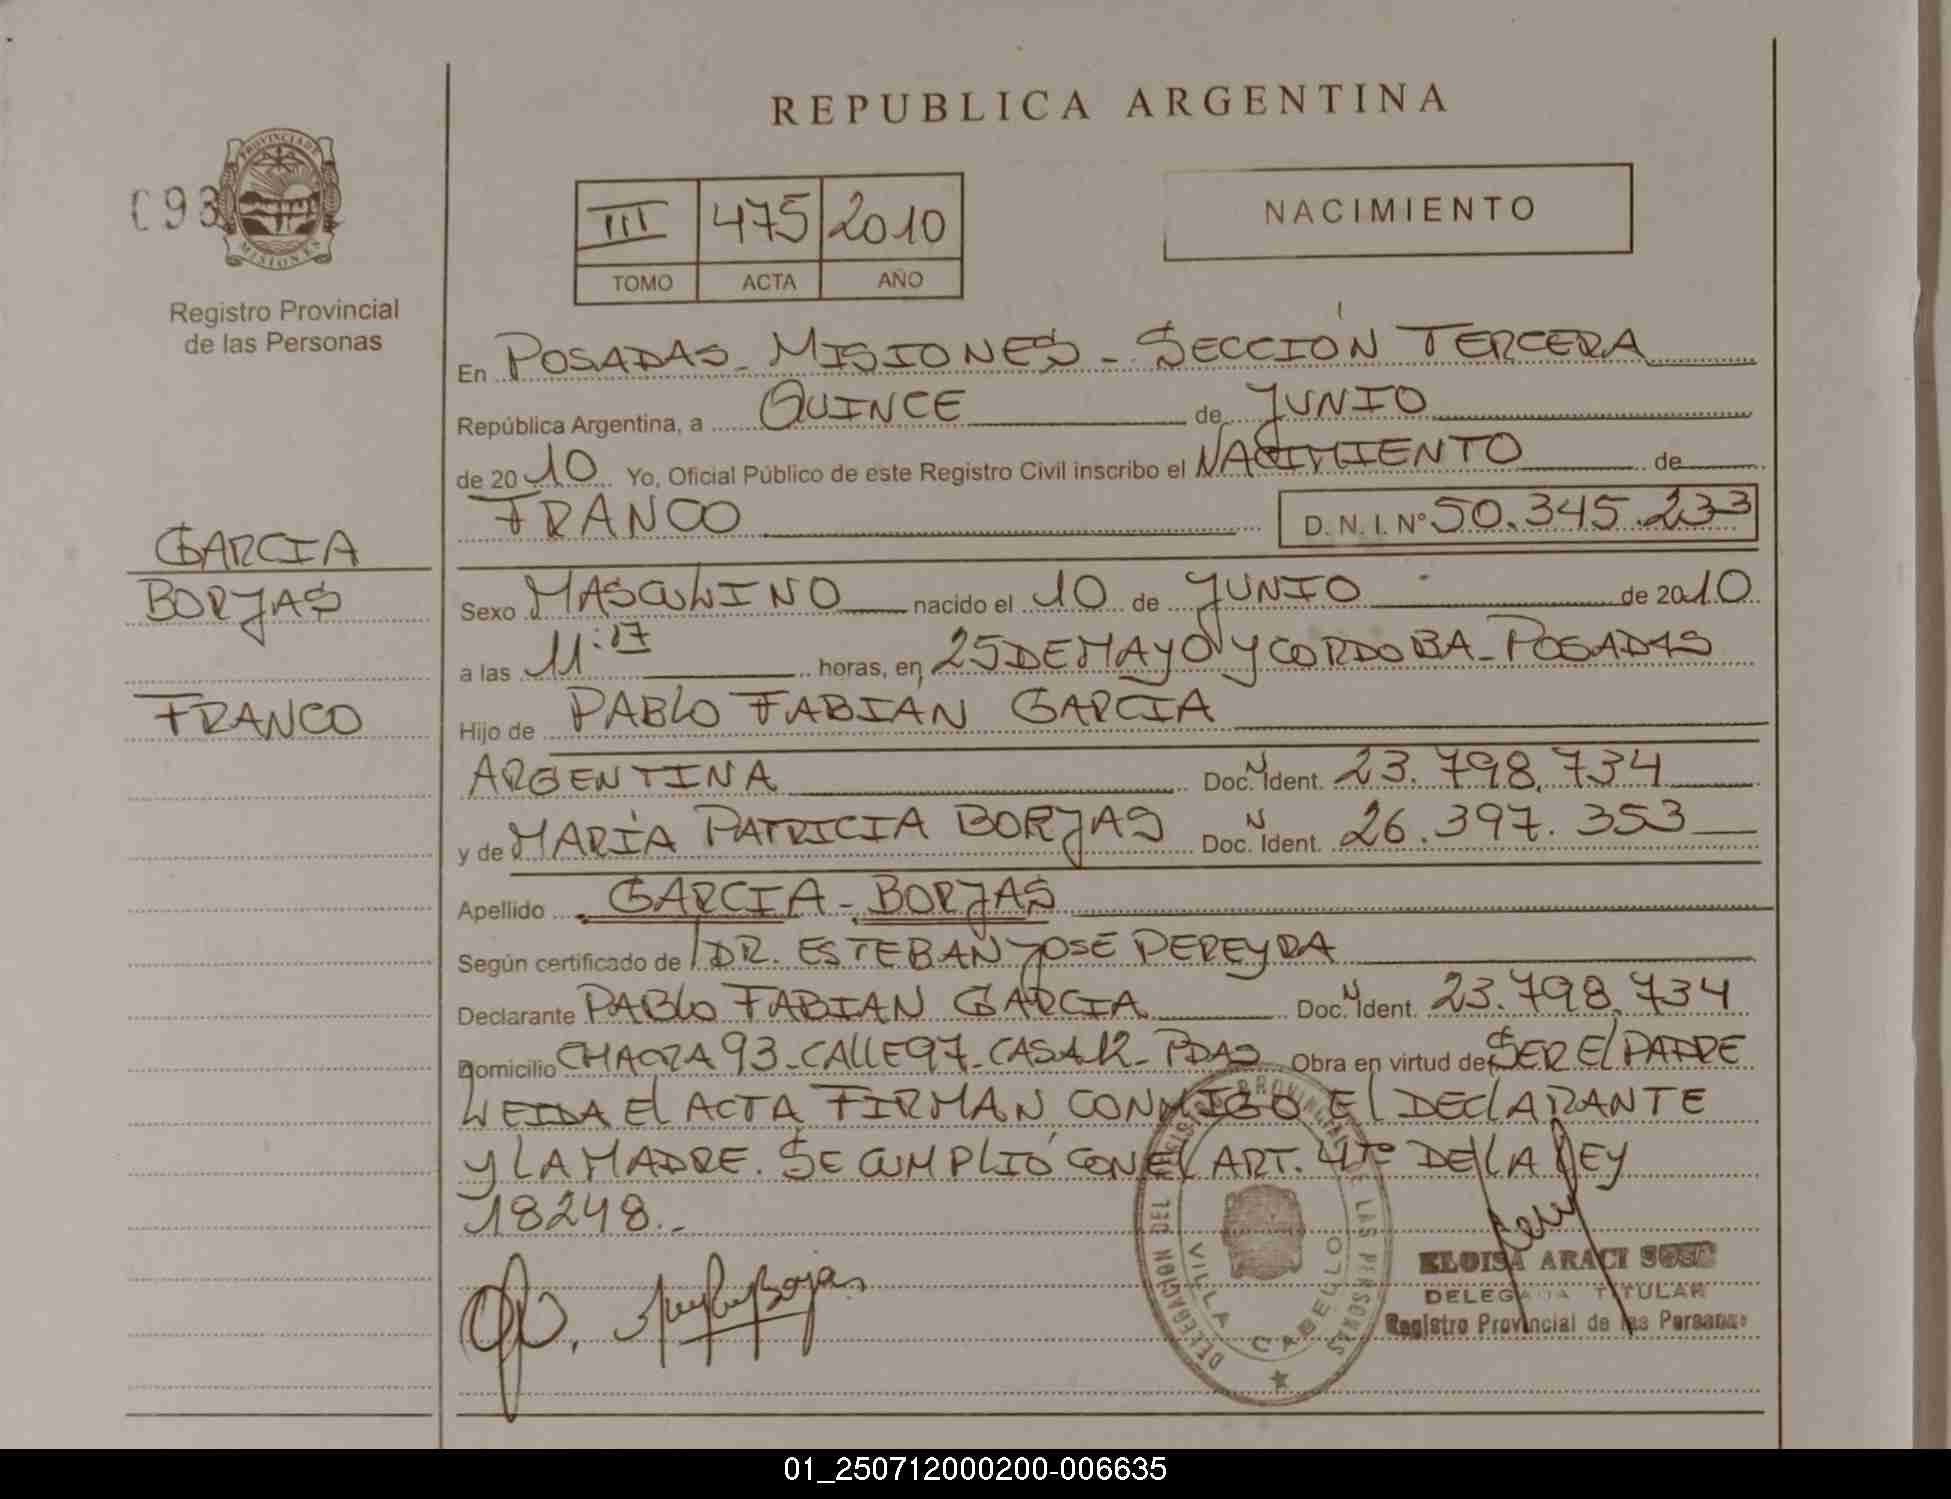 REPUBLICA ARGENTINA
PROVINCIA DE
MISIONES
093
Registro Provincial
de las Personas
III 475 2010
TOMO ACTA AÑO
NACIMIENTO
En POSADAS - MISIONES - SECCIÓN TERCERA
República Argentina, a QUINCE de JUNIO
de 2010 Yo, Oficial Público de este Registro Civil inscribo el NACIMIENTO de
FRANCO D. N. I. N° 50.345.233
GARCIA
BORJAS
FRANCO
Sexo MASCULINO nacido el 10 de JUNIO de 2010
a las 11:17 horas, en 25 DE MAYO Y CORDOBA - POSADAS
Hijo de PABLO FABIAN GARCIA
ARGENTINA Doc. N Ident. 23.798.734
y de MARÍA PATRICIA BORJAS Doc. N Ident. 26.397.353
Apellido GARCIA - BORJAS
Según certificado de DR. ESTEBAN JOSE PEREYRA
Declarante PABLO FABIAN GARCIA Doc. N Ident. 23.798.734
Domicilio CHACRA 93 - CALLE 97 - CASA 12 - PDAS Obra en virtud de SER El PADRE
LEIDA El ACTA FIRMAN CONMIGO El DEClARANTE
Y LA MADRE. SE CUMPLIÓ CON El ART. DE LA LEY
18248.-
Borjas
DELEGACION DEL REGISTRO PROVINCIAL DE LAS PERSONAS
VILLA CABELLO
ELOISA ARACI SOSA
DELEGADA TITULAR
Registro Provincial de las Personas
01_250712000200-006635